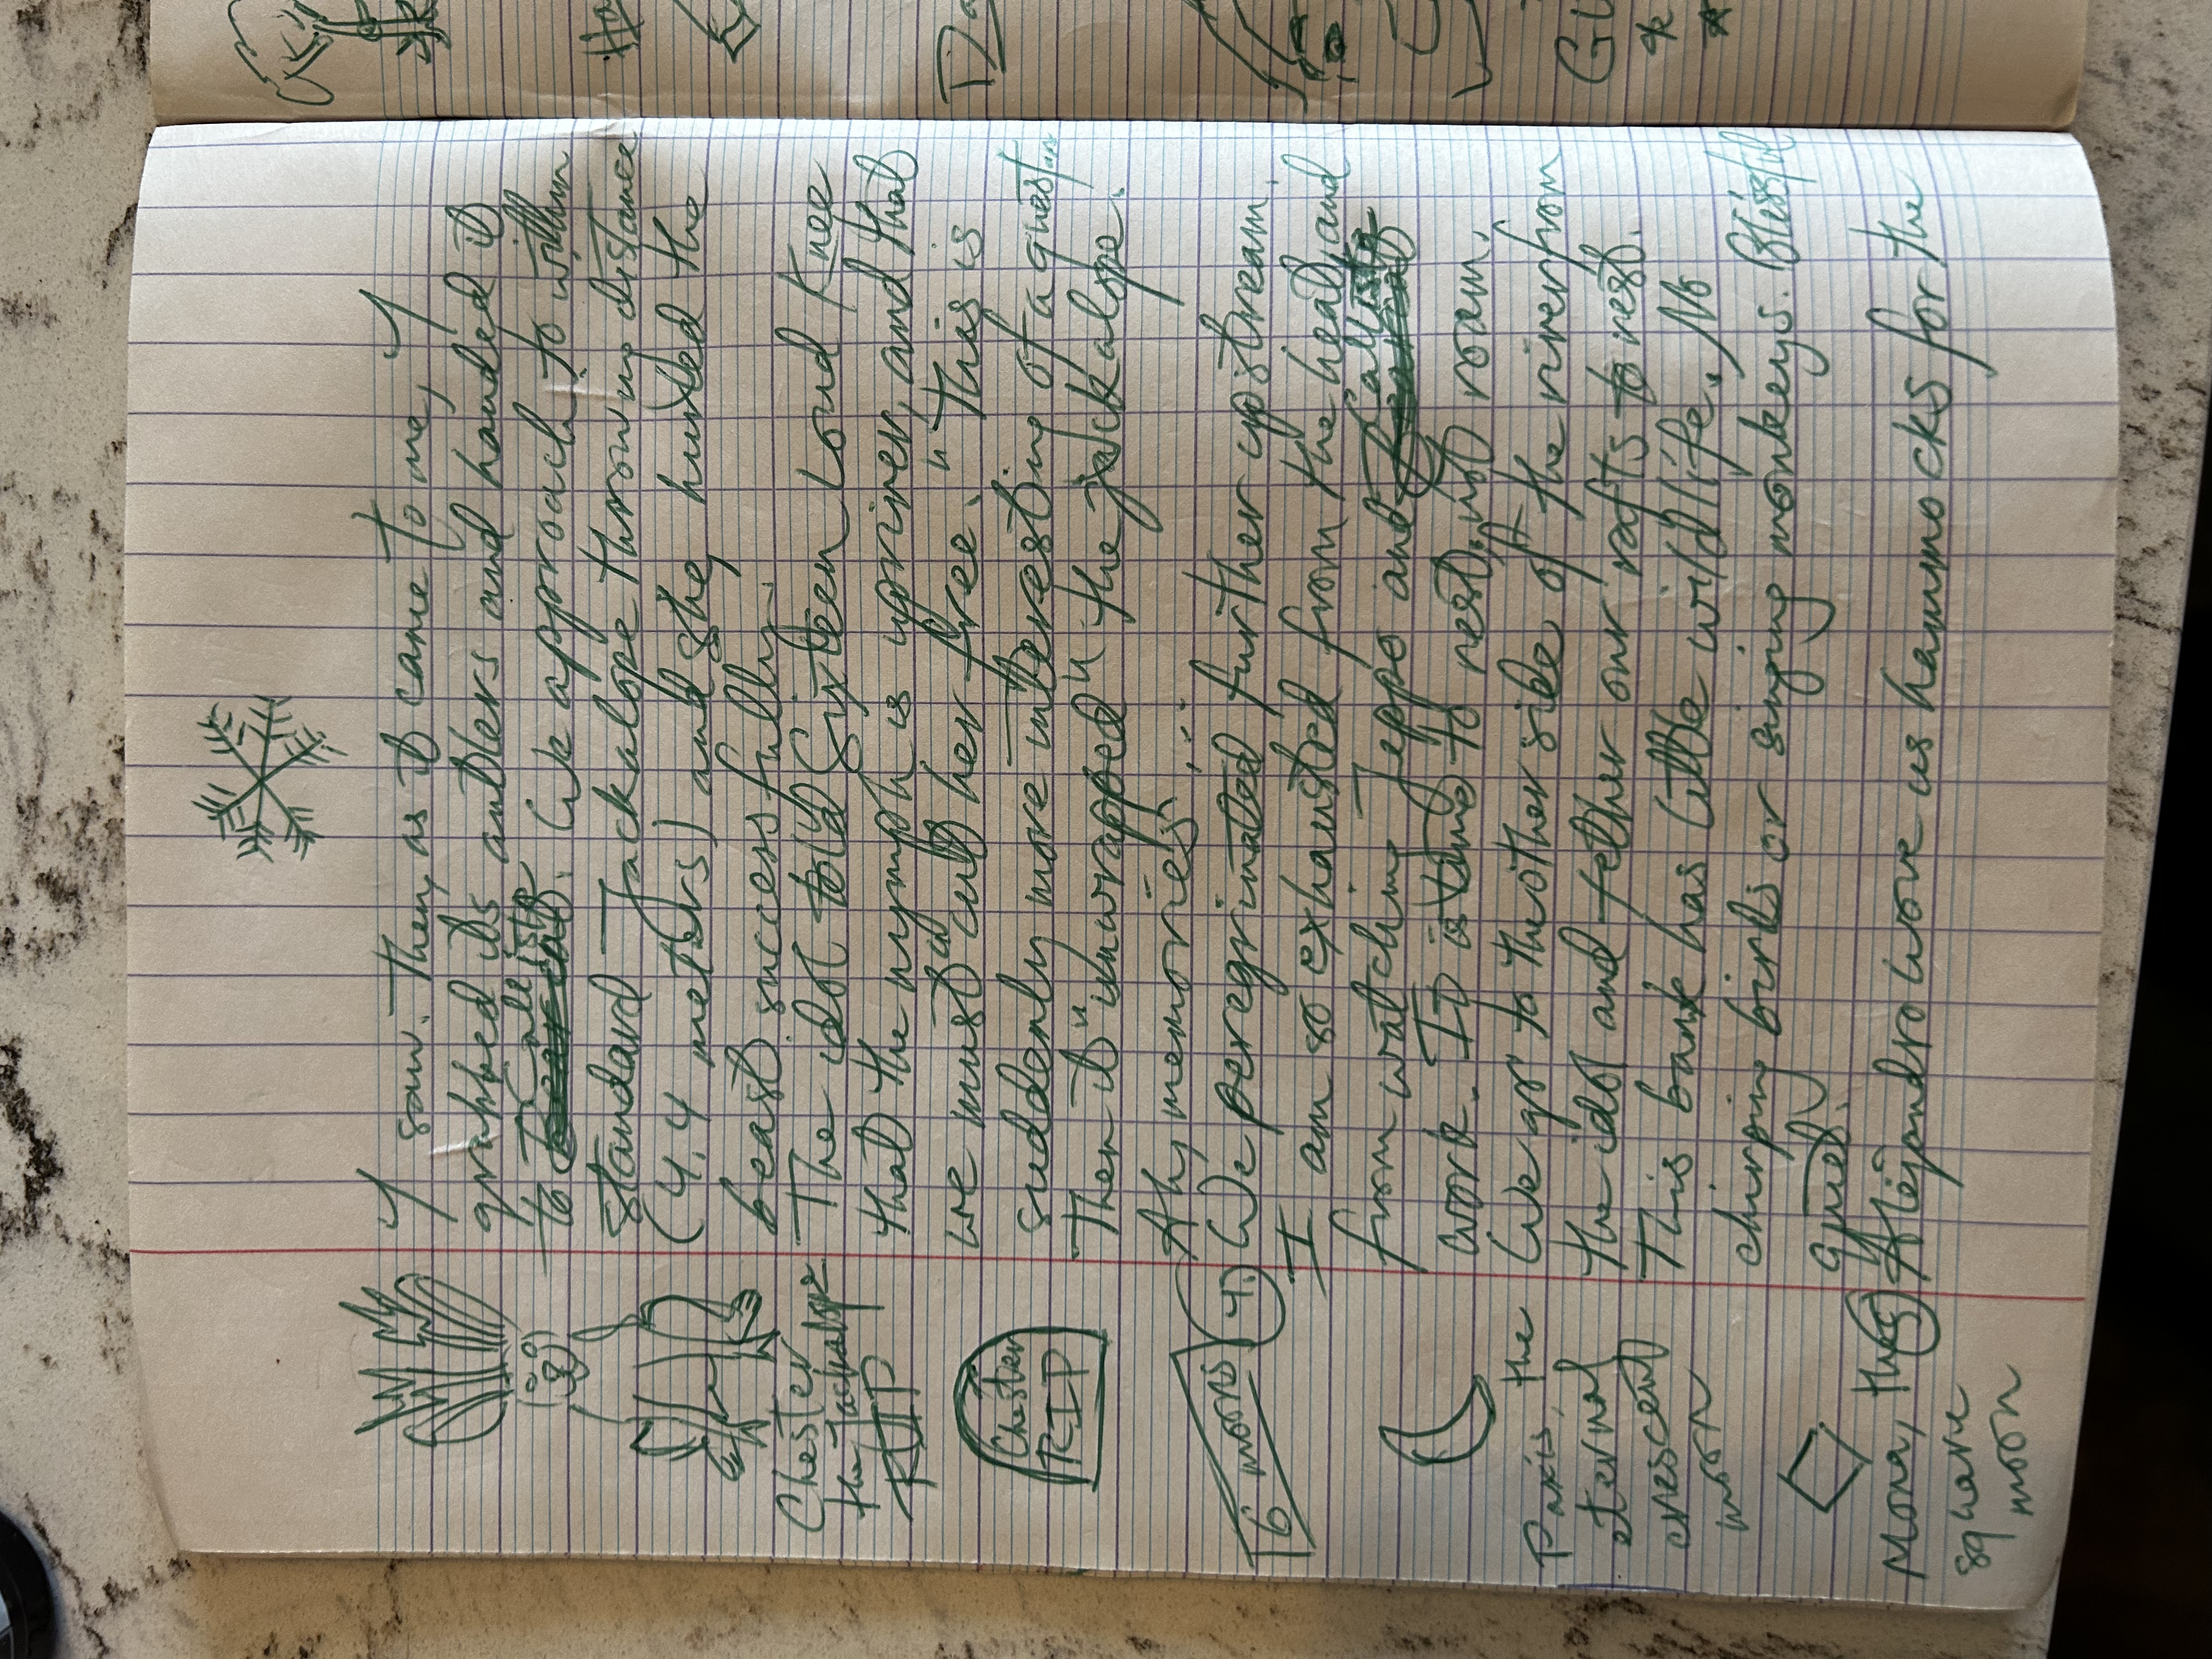 I saw. Then, as it came to me, I
grabbed its antlers and handed it
to Callista. (We approach to within
standard Jackalope throwing distance
(4.4 meters) and she hurled the
beast successfully.
The idol told Sixteen Lord Knee
that the nymph is upriver, and that
we must "cut her free." This is
suddenly more interesting of a quest
Then it "unwrapped" the jackalope.
Ah, memories!...
4. We peregrinated further upstream.
I am so exhausted from the heat and
from watching Jeppo and Callista
work. It is time to rest, not roam.
We go to the other side of the river from
the idol and tether our rafts to rest.
This bank has little wildlife. No
chirping birds or singing monkeys. Blissful
quiet.
5 Alejandro wove us hammocks for the
Chester
the Jackalope
RIP
Chester
RIP
6 moons
Paxis, the
eternal
crescent
moon
Mona, the
square
moon